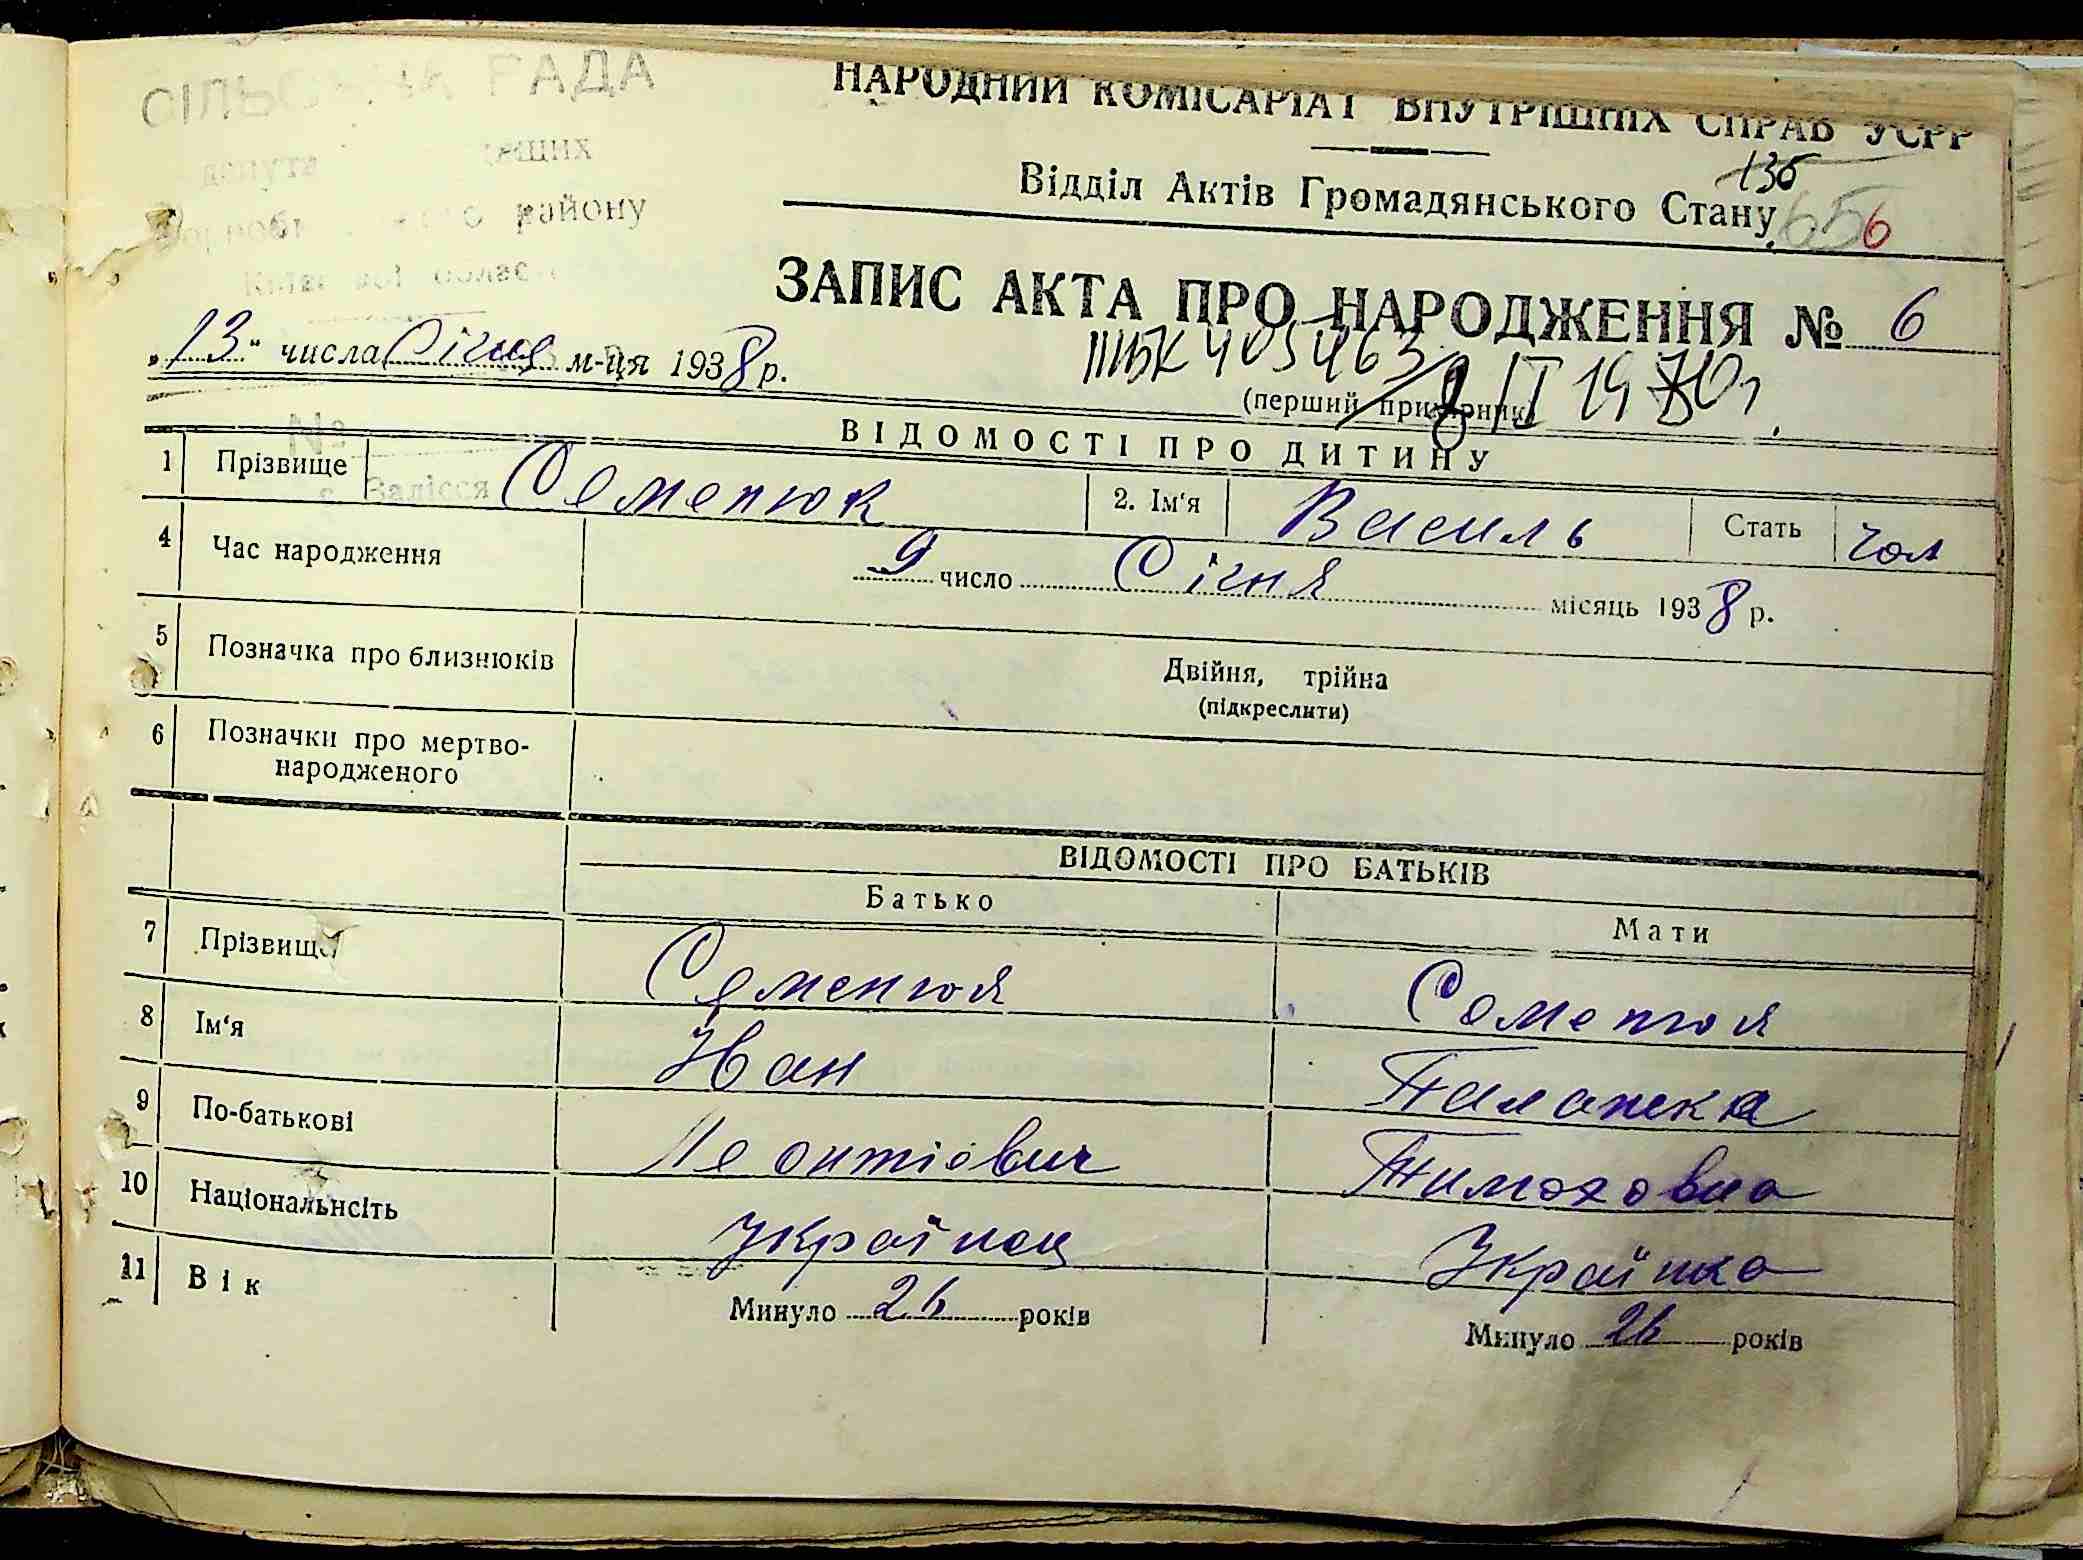 СІЛЬСЬКА РАДА
району
НАРОДНИЙ КОМІСАРІАТ ВНУТРІШНІХ СПРАВ УСРР
Відділ Актів Громадянського Стану
136
656
ЗАПИС АКТА ПРО НАРОДЖЕННЯ № 6
„13" числа Січня м-ця 1938 р.
(перший примірник)
№
с. Залісся
ВІДОМОСТІ ПРО ДИТИНУ
1 Прізвище Семенюк 2. Ім'я Василь Стать чол
4 Час народження 9 число Січня місяць 1938 р.
5 Позначка про близнюків Двійня, трійна
(підкреслити)
6 Позначки про мертво-
народженого
ВІДОМОСТІ ПРО БАТЬКІВ
Батько Мати
7 Прізвище Семенюк Семенюк
8 Ім'я Іван Палажка
9 По-батькові Леонтієвич Тимоховна
10 Національнсіть Українец Українка
11 Вік Минуло 26 років Минуло 26 років